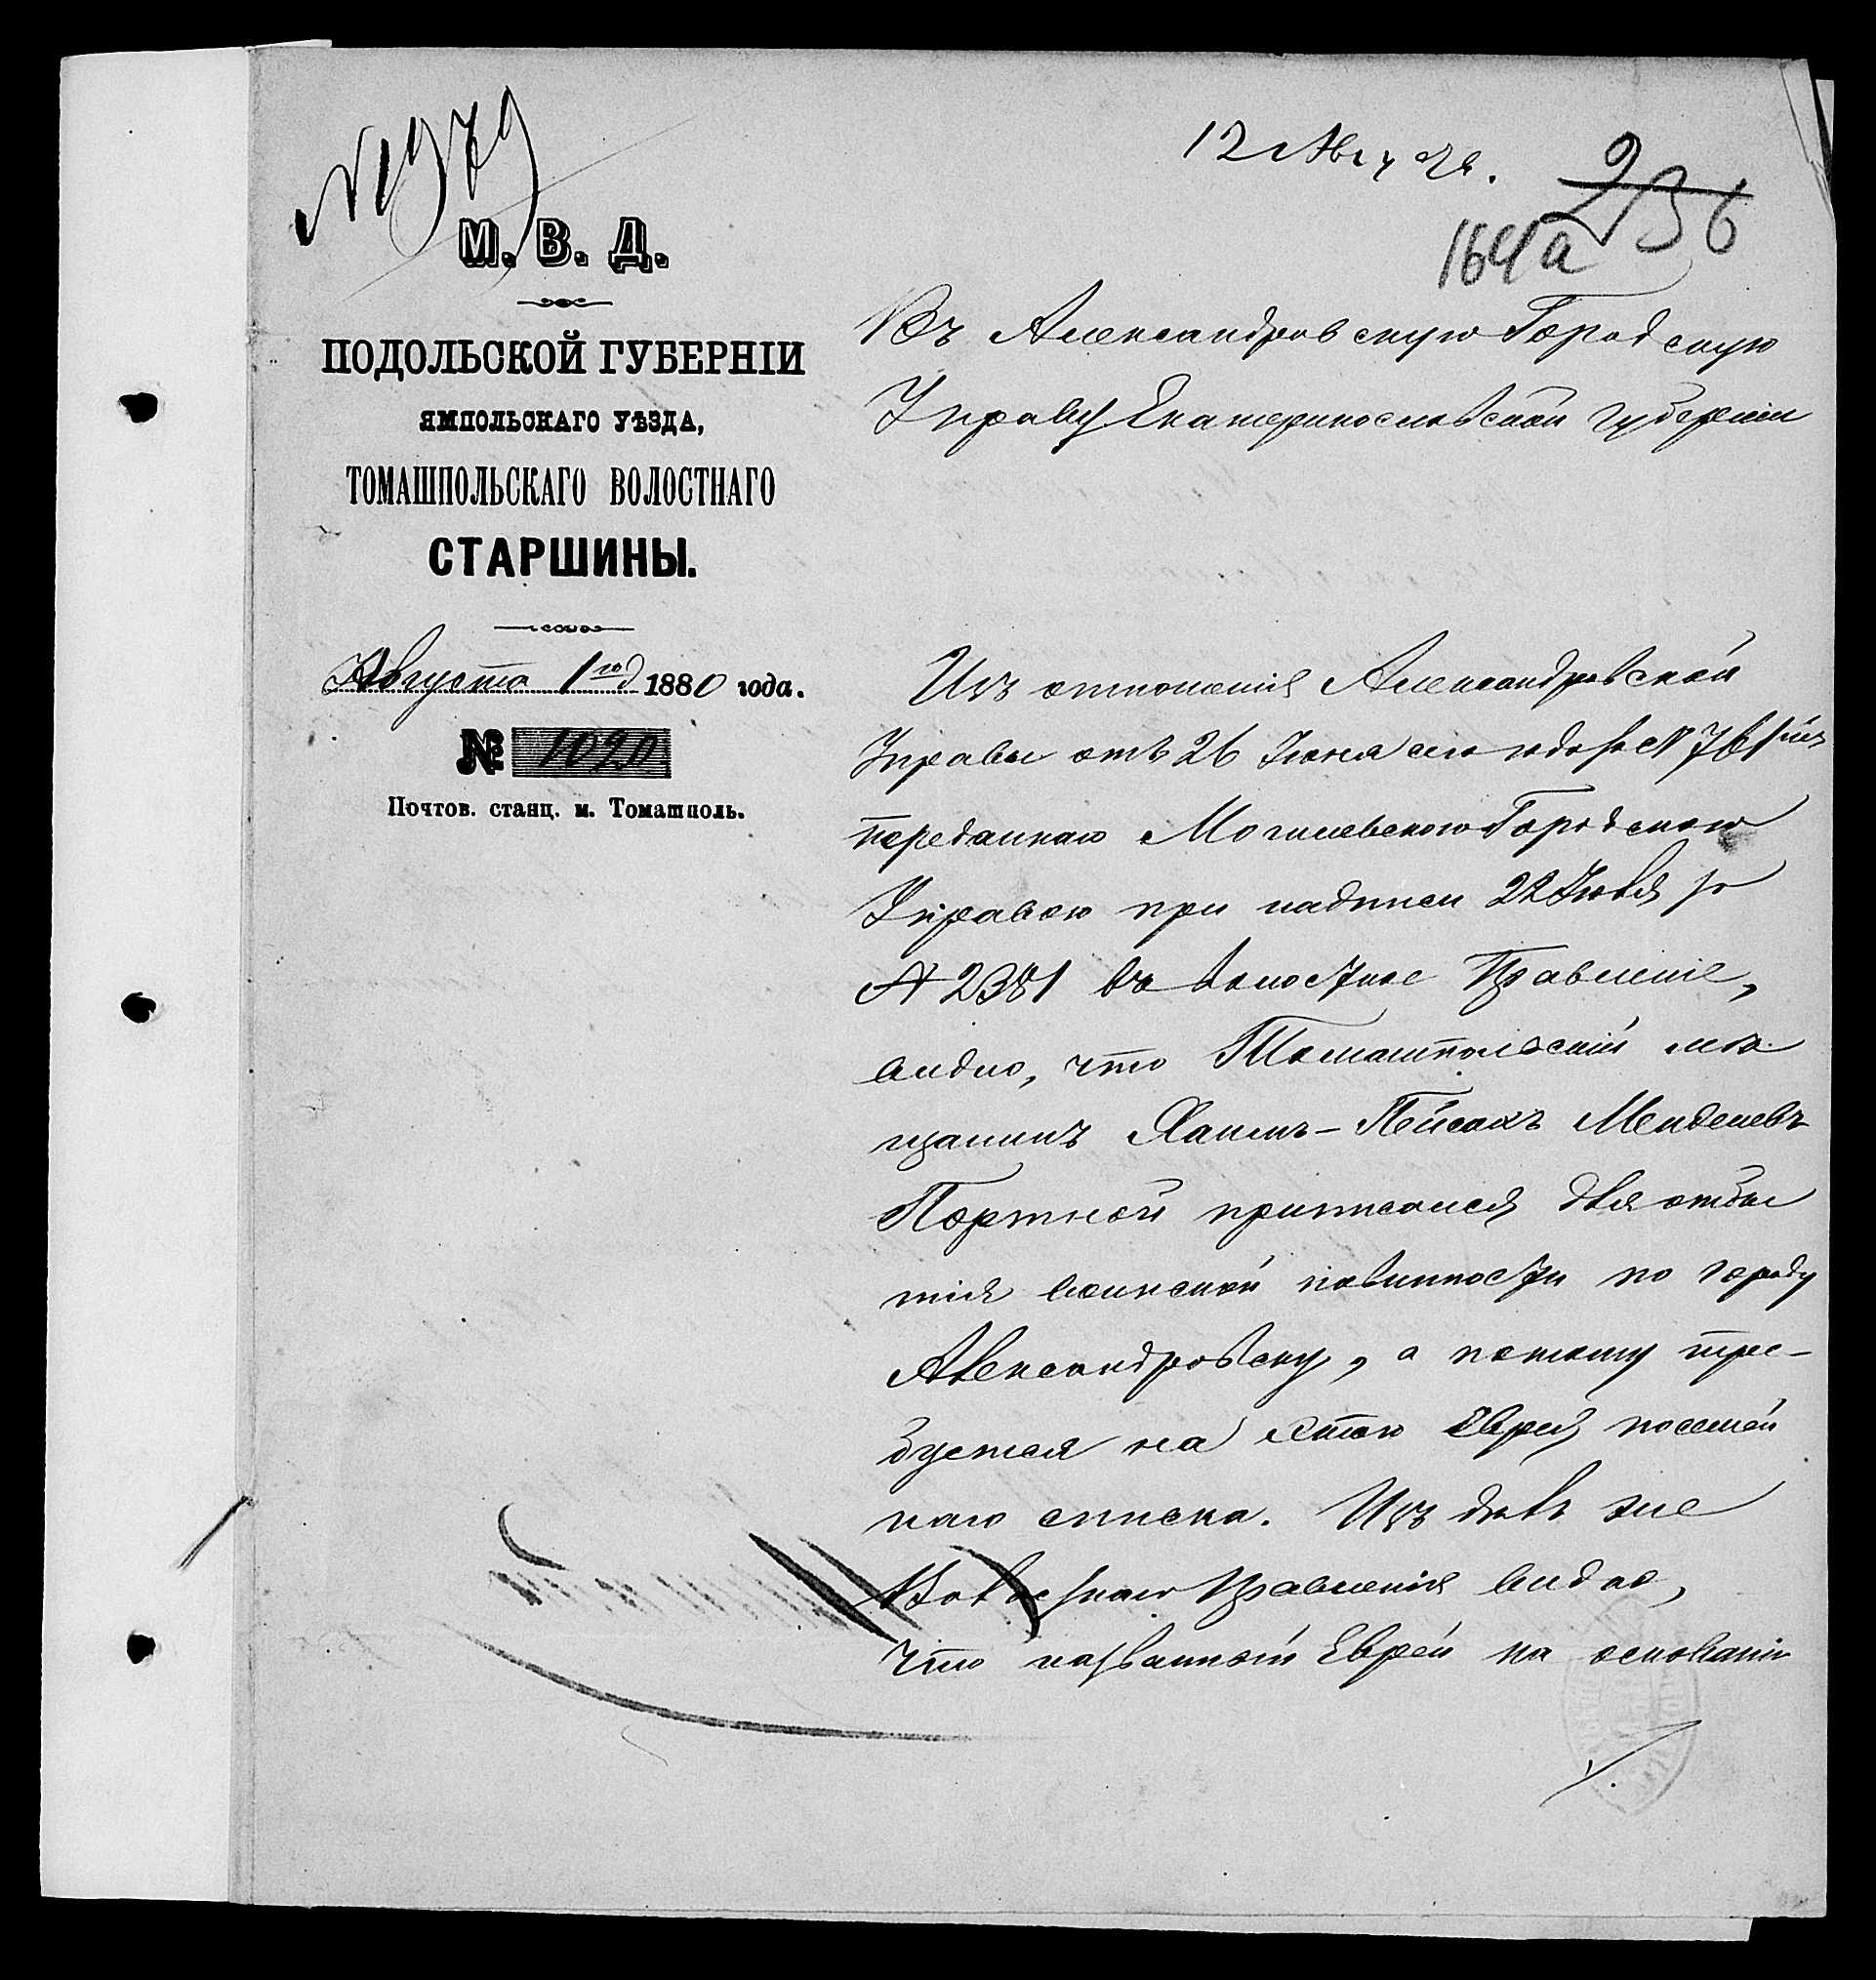 N 1979
12 Августа.
236
164а
М. В. Д.
ПОДОЛЬСКОЙ ГУБЕРНІИ
ЯМПОЛЬСКАГО УѢЗДА,
ТОМАШПОЛЬСКАГО ВОЛОСТНАГО
СТАРШИНЫ.
Августа 1 го д 1880 года.
№ 1020
Почтов. станц. м. Томашполь.
Въ Александровскую Городскую
Управу Екатеринославской губерніи
Изъ отношенія Александровской
Управы отъ 26 Іюня сего года за N 761
переданнаго Могилевскою Городскою
Управою при надписи 22 Іюля за
N 2381 въ волостное Правленіе,
видно, что Томашпольскій мѣ
щанинъ Хаимъ-Пейсахъ Менделевъ
Портной приписался для отбы
тія воинской повинности по городу
Александровску, а потому тре-
буется на этого еврея посемей
наго списка. Изъ дѣлъ же
Волостнаго Правленія видно,
что названный Еврей на основаніи